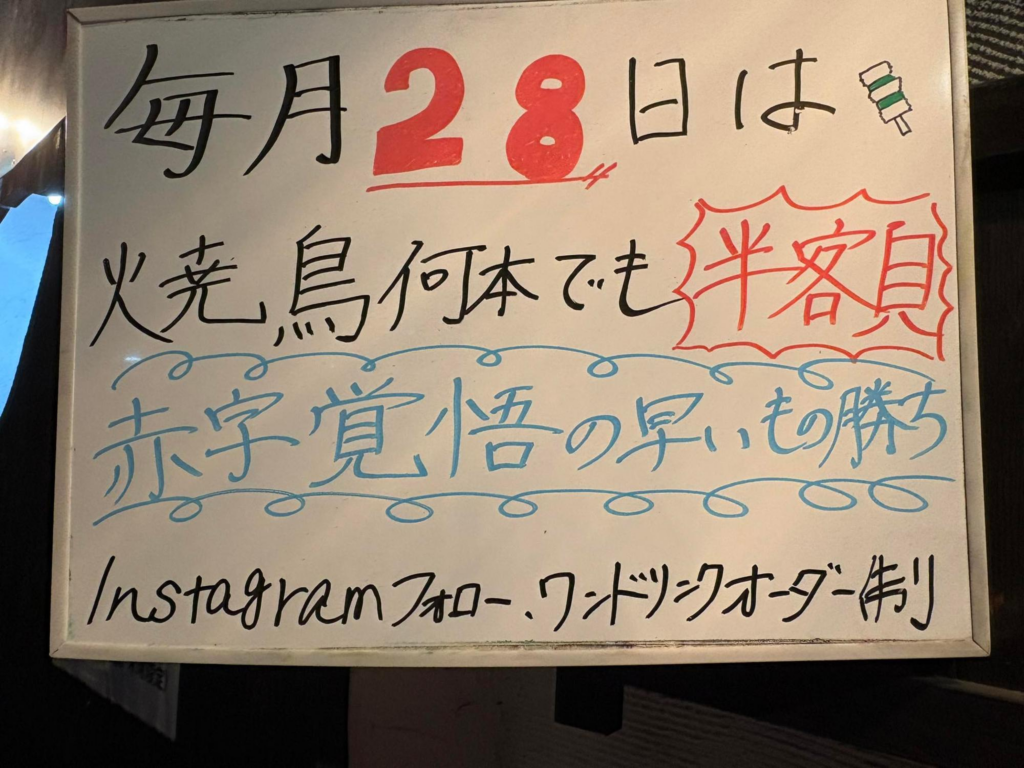 毎月28日は
焼鳥何本でも半額
赤字覚悟の早いもの勝ち
Instagramフォロー、ワンドリンクオーダー制